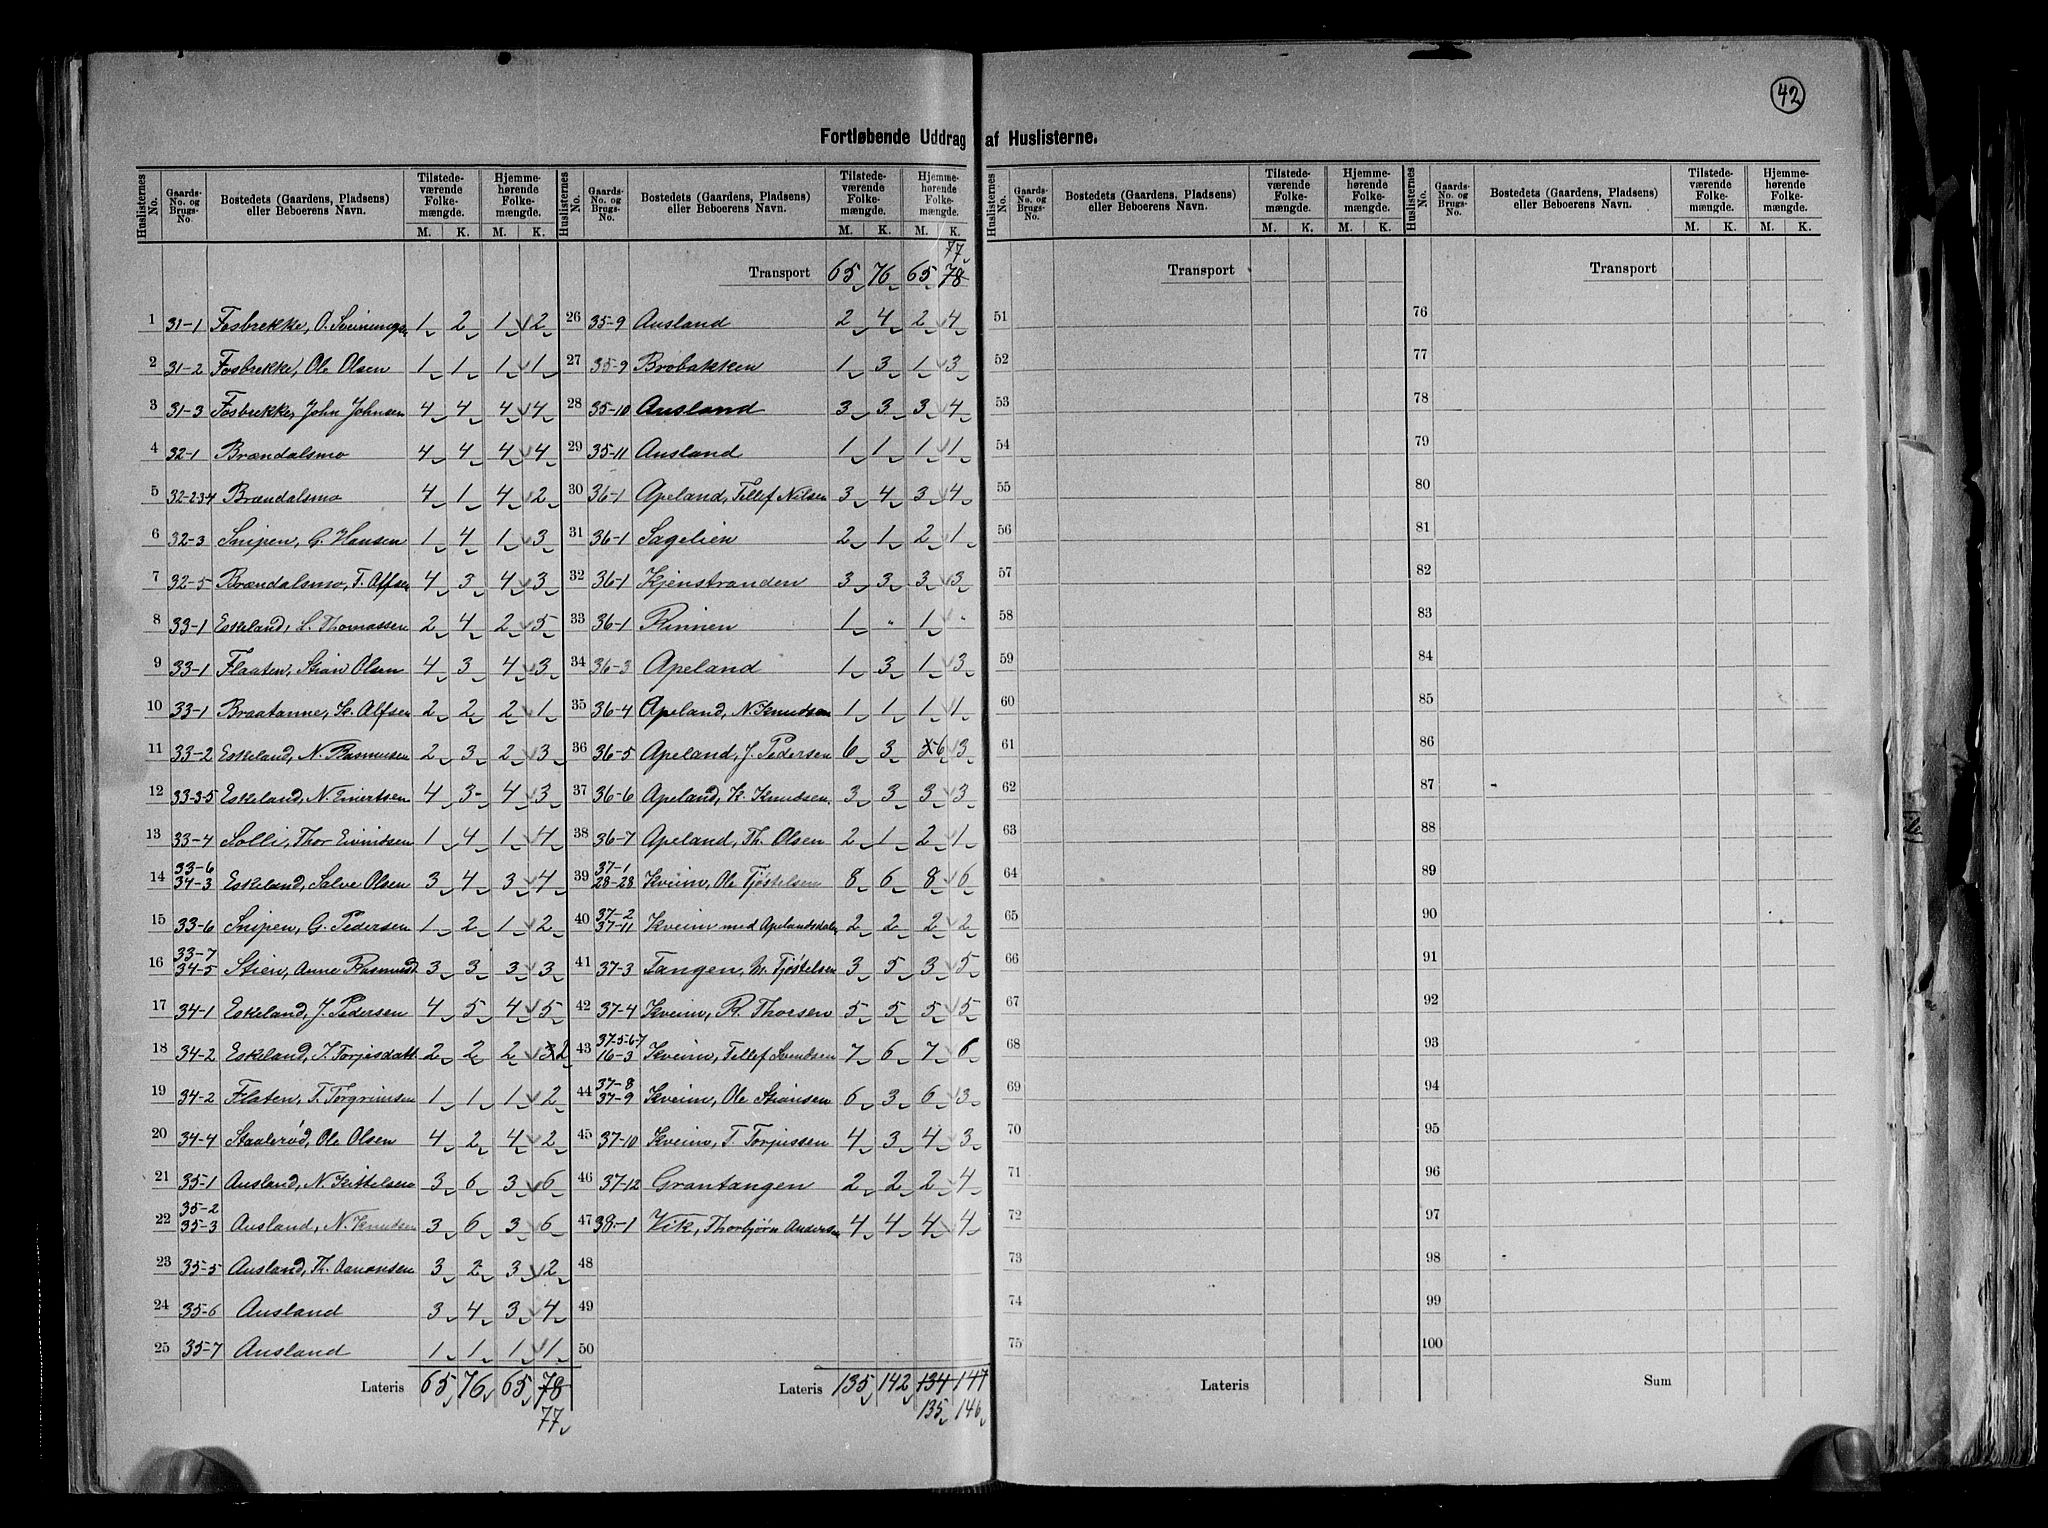 42
Fortløbende Uddrag af Huslisterne.
Huslisternes No. | Gaards-No. og Brugs-No. | Bostedets (Gaardens, Pladsens) eller Beboerens Navn. | Tilstedeværende Folkemængde. M. K. | Hjemmehørende Folkemængde. M. K.
1 31-1 Fosbrekke, O. Sveinungs. 1 2 1 2
2 31-2 Fosbrekke, Ole Olsen 1 1 1 1
3 31-3 Fosbrekke, John Johnsen 4 4 4 4
4 32-1 Brændalsmo 4 4 4 4
5 32-2-3-4 Brændalsmo 4 1 4 2
6 32-3 Snipen, C. Hansen 1 4 1 3
7 32-5 Brændalsmo, T. Alfsen 4 3 4 3
8 33-1 Eskeland, S. Thomassen 2 4 2 5
9 33-1 Flaaten, Stian Olsen 4 3 4 3
10 33-1 Braatanne, K. Alfsen 2 2 2 1
11 33-2 Eskeland, N. Rasmusen 2 3 2 3
12 33-3-5 Eskeland, N. Evertsen 4 3 4 3
13 33-4 Solli, Thor Eivindsen 1 4 1 4
14 33-6 34-3 Eskeland, Salve Olsen 3 4 3 4
15 33-6 Snipen, G. Pedersen 1 2 1 2
16 33-7 34-5 Stien, Anne Rasmusd 3 3 3 3
17 34-1 Eskeland, J. Pedersen 4 5 4 5
18 34-2 Eskeland, I. Torjusdatt 2 2 2 3 2
19 34-2 Flaten, T. Torgrimsen 1 1 1 2
20 34-4 Staalerød, Ole Olsen 4 2 4 2
21 35-1 Ausland, N. Kittelsen 3 6 3 6
22 35-2 35-3 Ausland, N. Knudsen 3 6 3 6
23 35-5 Ausland, Th. Aanonsen 3 2 3 2
24 35-6 Ausland 3 4 3 4
25 35-7 Ausland 1 1 1 1
Lateris 65 76 65 78
77
Huslisternes No. | Gaards-No. og Brugs-No. | Bostedets (Gaardens, Pladsens) eller Beboerens Navn. | Tilstedeværende Folkemængde. M. K. | Hjemmehørende Folkemængde. M. K.
77
Transport 65 76 65 78
26 35-9 Ausland 2 4 2 4
27 35-9 Brobakken 1 3 1 3
28 35-10 Ausland 3 3 3 4
29 35-11 Ausland 1 1 1 1
30 36-1 Apeland, Tellef Nilsen 3 4 3 4
31 36-1 Sagelien 2 1 2 1
32 36-1 Kjenstranden 3 3 3 3
33 36-1 Rinnen 1 " 1 "
34 36-3 Apeland 1 3 1 3
35 36-4 Apeland, N. Knudsen 1 1 1 1
36 36-5 Apeland, J. Pedersen 6 3 5 6 3
37 36-6 Apeland, K. Knudsen 3 3 3 3
38 36-7 Apeland, Th. Olsen 2 1 2 1
39 37-1 28-28 Kveim, Ole Tjøstelsen 8 6 8 6
40 37-2 37-11 Kveim med Apelandsdalen 2 2 2 2
41 37-3 Tangen, M. Tjøstelsen 3 5 3 5
42 37-4 Kveim, R. Thorsen 5 5 5 5
43 37-5-6-7 16-3 Kveim, Tellef Svendsen 7 6 7 6
44 37-8 37-9 Kveim, Ole Stiansen 6 3 6 3
45 37-10 Kveim, T. Torjussen 4 3 4 3
46 37-12 Grantangen 2 2 2 4
47 38-1 Vik, Thorbjørn Andersen 4 4 4 4
48
49
50
Lateris 135 142 134 147
135 146
Huslisternes No. | Gaards-No. og Brugs-No. | Bostedets (Gaardens, Pladsens) eller Beboerens Navn. | Tilstedeværende Folkemængde. M. K. | Hjemmehørende Folkemængde. M. K.
Transport
51
52
53
54
55
56
57
58
59
60
61
62
63
64
65
66
67
68
69
70
71
72
73
74
75
Lateris
Huslisternes No. | Gaards-No. og Brugs-No. | Bostedets (Gaardens, Pladsens) eller Beboerens Navn. | Tilstedeværende Folkemængde. M. K. | Hjemmehørende Folkemængde. M. K.
Transport
76
77
78
79
80
81
82
83
84
85
86
87
88
89
90
91
92
93
94
95
96
97
98
99
100
Sum